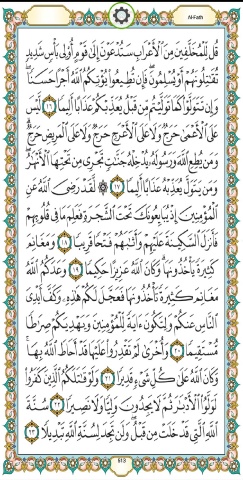 Al-Fath
قُل لِّلْمُخَلَّفِينَ مِنَ الْأَعْرَابِ سَتُدْعَوْنَ إِلَىٰ قَوْمٍ أُولِي بَأْسٍ شَدِيدٍ
تُقَاتِلُونَهُمْ أَوْ يُسْلِمُونَ فَإِن تُطِيعُوا يُؤْتِكُمُ اللَّهُ أَجْرًا حَسَنًا
وَإِن تَتَوَلَّوْا كَمَا تَوَلَّيْتُم مِّن قَبْلُ يُعَذِّبْكُمْ عَذَابًا أَلِيمًا ١٦ لَّيْسَ
عَلَى الْأَعْمَىٰ حَرَجٌ وَلَا عَلَى الْأَعْرَجِ حَرَجٌ وَلَا عَلَى الْمَرِيضِ حَرَجٌ
وَمَن يُطِعِ اللَّهَ وَرَسُولَهُ يُدْخِلْهُ جَنَّاتٍ تَجْرِي مِن تَحْتِهَا الْأَنْهَارُ
وَمَن يَتَوَلَّ يُعَذِّبْهُ عَذَابًا أَلِيمًا ١٧ ۞ لَّقَدْ رَضِيَ اللَّهُ عَنِ
الْمُؤْمِنِينَ إِذْ يُبَايِعُونَكَ تَحْتَ الشَّجَرَةِ فَعَلِمَ مَا فِي قُلُوبِهِمْ
فَأَنزَلَ السَّكِينَةَ عَلَيْهِمْ وَأَثَابَهُمْ فَتْحًا قَرِيبًا ١٨ وَمَغَانِمَ
كَثِيرَةً يَأْخُذُونَهَا وَكَانَ اللَّهُ عَزِيزًا حَكِيمًا ١٩ وَعَدَكُمُ اللَّهُ
مَغَانِمَ كَثِيرَةً تَأْخُذُونَهَا فَعَجَّلَ لَكُمْ هَٰذِهِ وَكَفَّ أَيْدِيَ
النَّاسِ عَنكُمْ وَلِتَكُونَ آيَةً لِّلْمُؤْمِنِينَ وَيَهْدِيَكُمْ صِرَاطًا
مُّسْتَقِيمًا ٢٠ وَأُخْرَىٰ لَمْ تَقْدِرُوا عَلَيْهَا قَدْ أَحَاطَ اللَّهُ بِهَا
وَكَانَ اللَّهُ عَلَىٰ كُلِّ شَيْءٍ قَدِيرًا ٢١ وَلَوْ قَاتَلَكُمُ الَّذِينَ كَفَرُوا
لَوَلَّوُا الْأَدْبَارَ ثُمَّ لَا يَجِدُونَ وَلِيًّا وَلَا نَصِيرًا ٢٢ سُنَّةَ
اللَّهِ الَّتِي قَدْ خَلَتْ مِن قَبْلُ وَلَن تَجِدَ لِسُنَّةِ اللَّهِ تَبْدِيلًا ٢٣
513